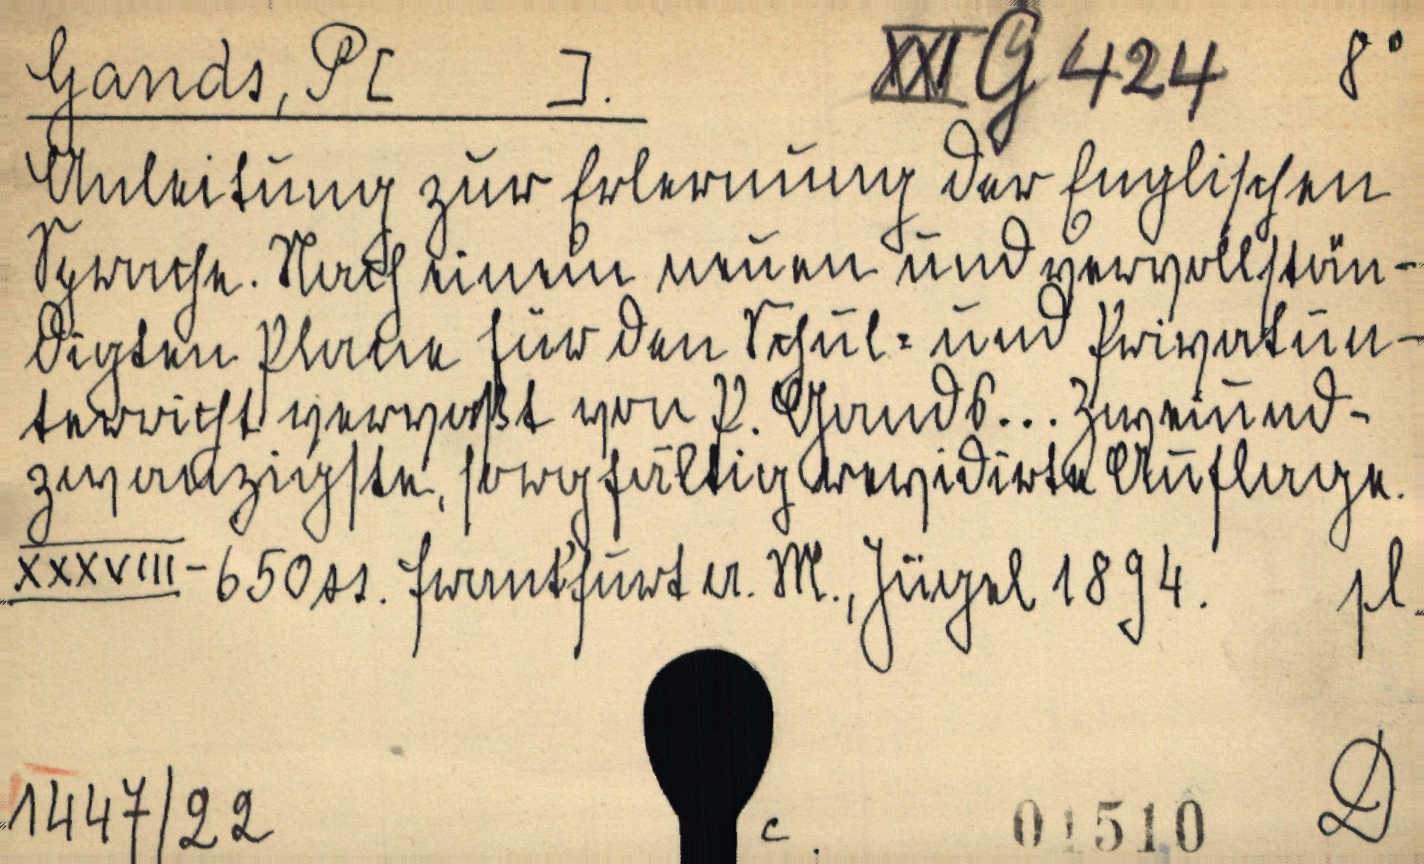 Gands, P[ ]. XXI G 424 8°
Anleitung zur Erlernung der Englischen
Sprache. Nach einem neuen und vervollstän-
digten Plane für den Schul- und Privatun-
terricht vervaßt von P. Gands... Zweiund-
zwanzigste, sorgfältig revidirte Auflage.
XXXVIII-650 ss. Frankfurt a. M., Jügel 1894. pl.
1447/22 c. 01510 D